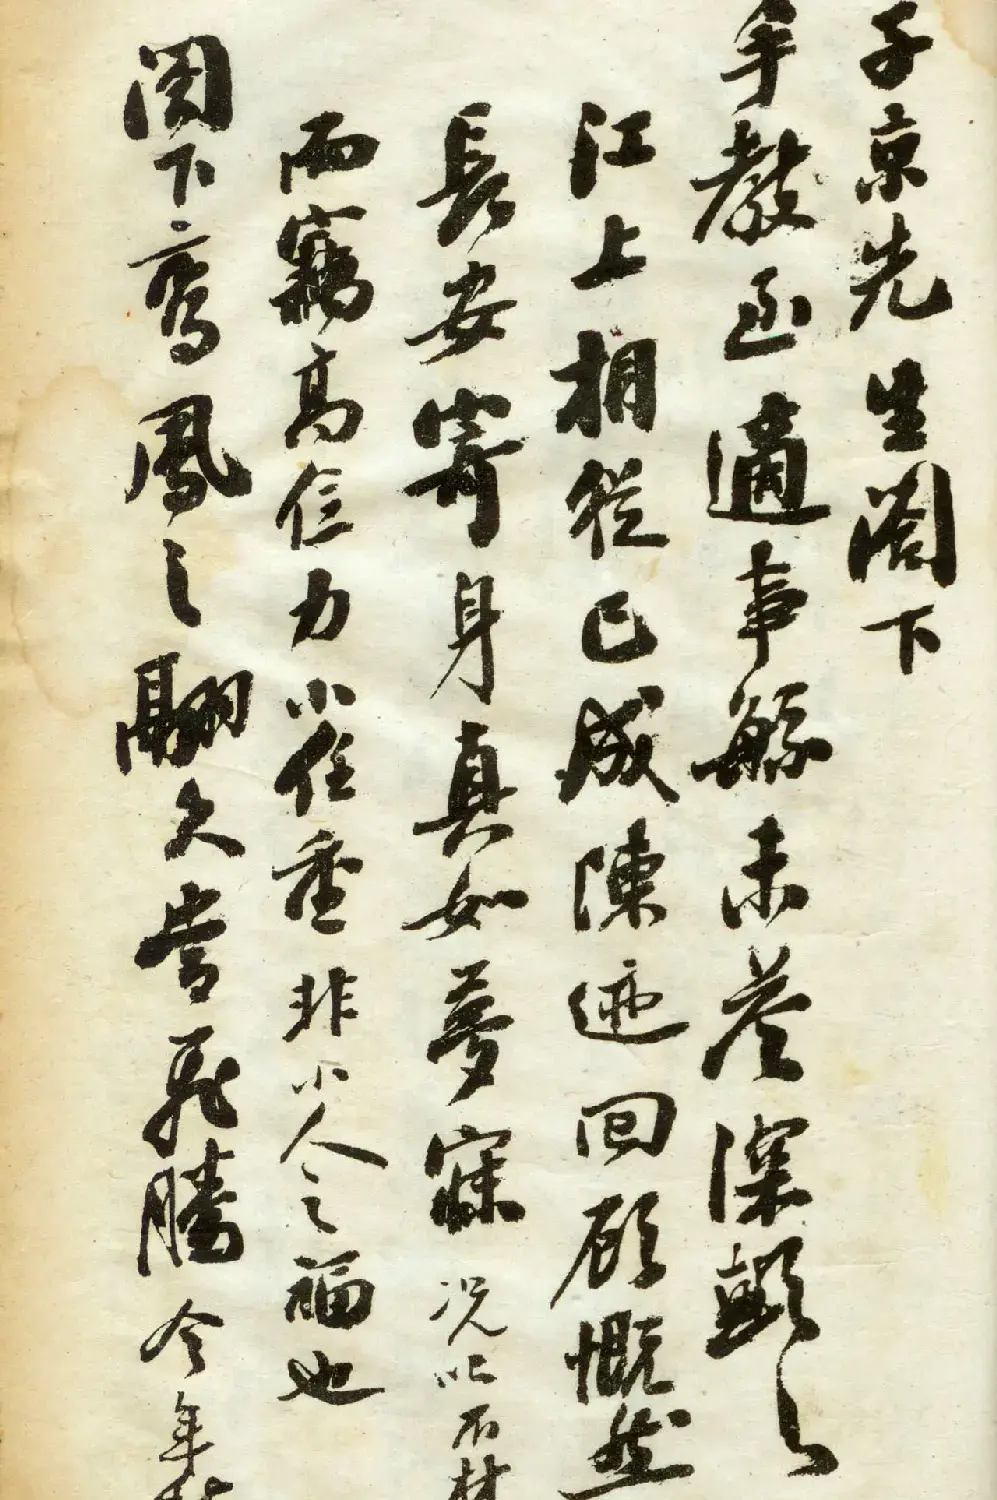 子京先生閣下
手教至適事緐未答深
江上相從已成陳迹回顧慨然
長安寄身真如夢寐況以不材
而竊高位力小任重非小人之福也
閣下鸞鳳之翮久當飛騰今年